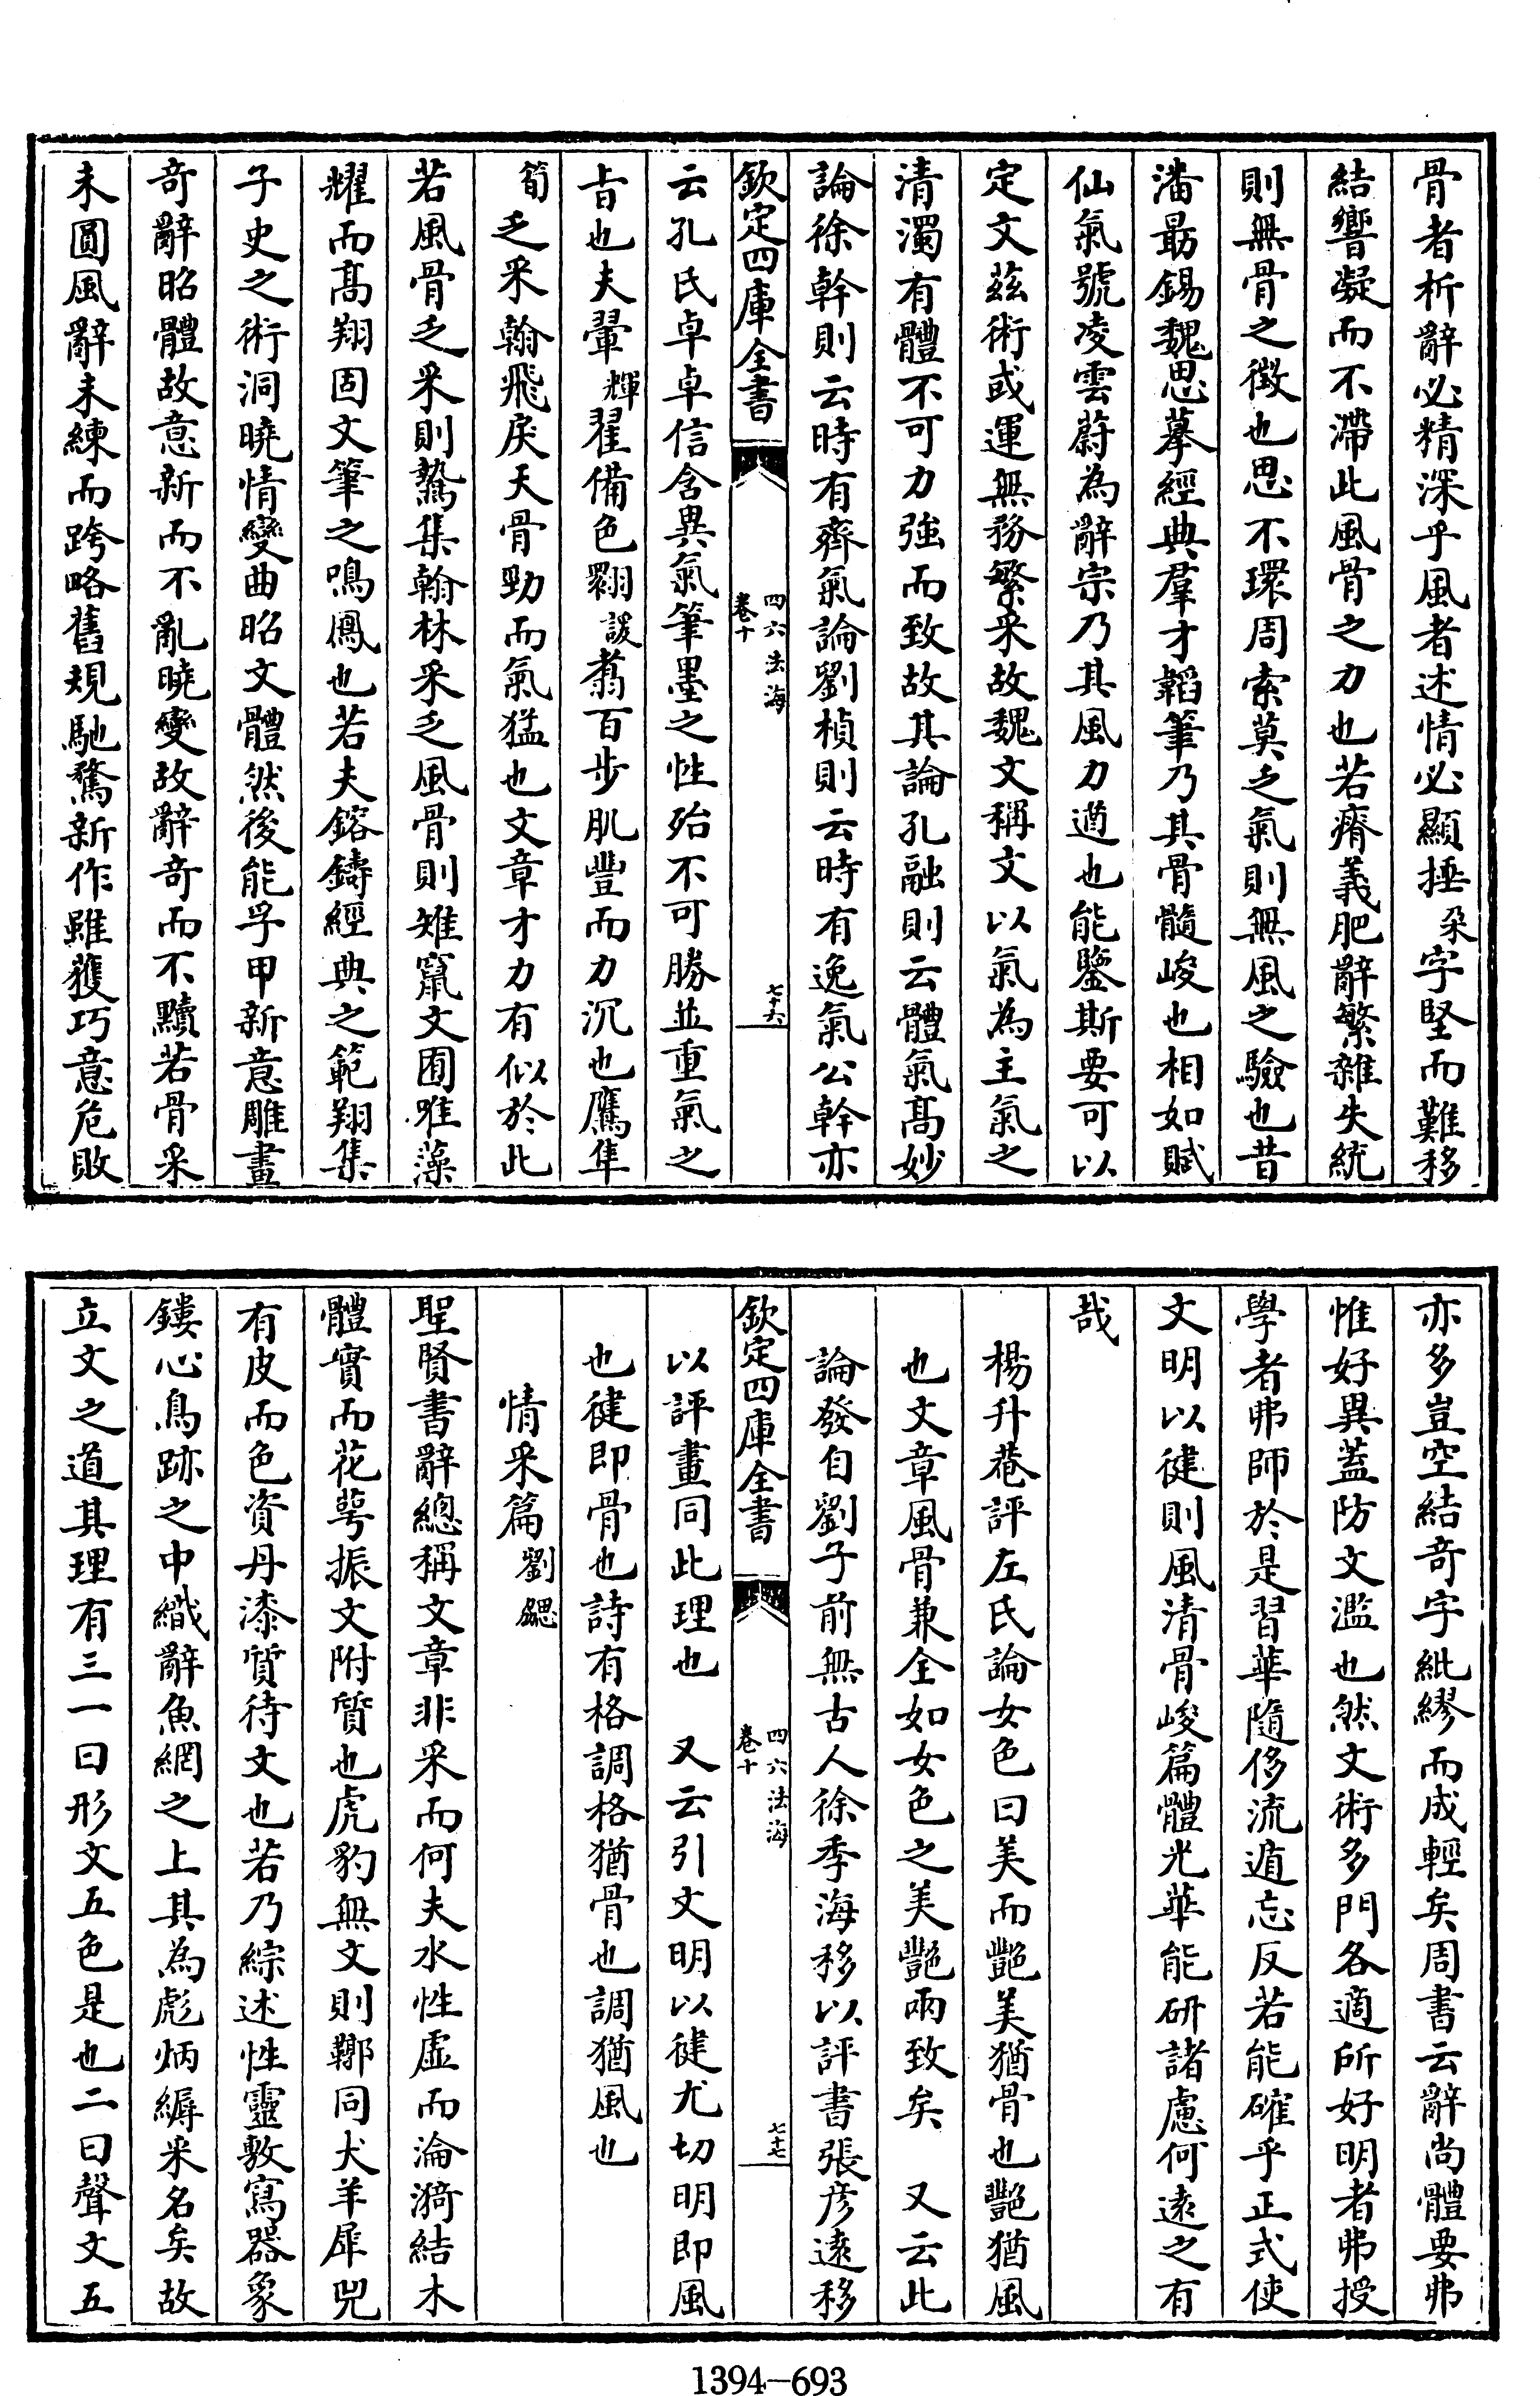 骨者析辭必精深乎風者述情必顯捶朶字堅而難移
結響凝而不滯此風骨之力也若瘠義肥辭繁雜失統
則無骨之徴也思不環周索莫乏氣則無風之驗也昔
潘朂錫魏思摹經典羣才韜筆乃其骨髓峻也相如賦
仙氣號凌雲蔚為辭宗乃其風力遒也能鑒斯要可以
定文茲術或運無務繁采故魏文稱文以氣為主氣之
清濁有體不可力強而致故其論孔融則云體氣髙妙
論徐幹則云時有齊氣論劉楨則云時有逸氣公幹亦
欽定四庫全書 四六法海 卷十 七十六
云孔氏卓卓信含異氣筆墨之性殆不可勝並重氣之
㫖也夫翬輝翟備色翾諼翥百步肌豐而力沉也鷹隼
筍乏采翰飛戾天骨勁而氣猛也文章才力有似於此
若風骨乏采則鷙集翰林采乏風骨則雉竄文囿唯藻
耀而髙翔固文筆之鳴鳳也若夫鎔鑄經典之範翔集
子史之術洞曉情變曲昭文體然後能孚甲新意雕畫
竒辭昭體故意新而不亂曉變故辭竒而不黷若骨采
未圓風辭未練而跨略舊規馳騖新作雖獲巧意危敗
亦多豈空結竒字紕繆而成輕矣周書云辭尚體要弗
惟好異蓋防文濫也然文術多門各適所好明者弗授
學者弗師於是習華隨侈流遁忘反若能確乎正式使
文明以徤則風清骨峻篇體光華能研諸慮何遠之有
哉
楊升菴評左氏論女色曰美而艷美猶骨也艷猶風
也文章風骨兼全如女色之美艷兩致矣 又云此
論發自劉子前無古人徐季海移以評書張彦遠移
欽定四庫全書 四六法海 卷十 七十七
以評畫同此理也 又云引文明以徤尤切明即風
也徤即骨也詩有格調格猶骨也調猶風也
情采篇 劉勰
聖賢書辭總稱文章非采而何夫水性虚而淪漪結木
體實而花萼振文附質也虎豹無文則鞹同犬羊犀兕
有皮而色資丹漆質待文也若乃綜述性靈敷寫器象
鏤心鳥跡之中織辭魚網之上其為彪炳縟采名矣故
立文之道其理有三一曰形文五色是也二曰聲文五
1394-693